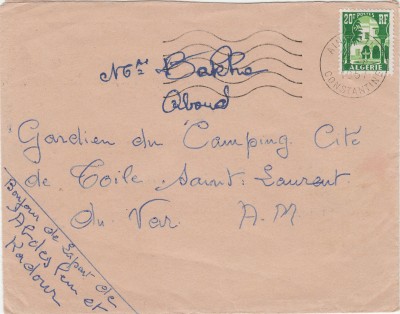 20F POSTES RF
ALGERIE
CONSTANTINE
Bakha
Aboud
Gardien du Camping Cité
de Toile Saint-Laurent
du Var A.M
Bonjour de la part de
et
Kadour